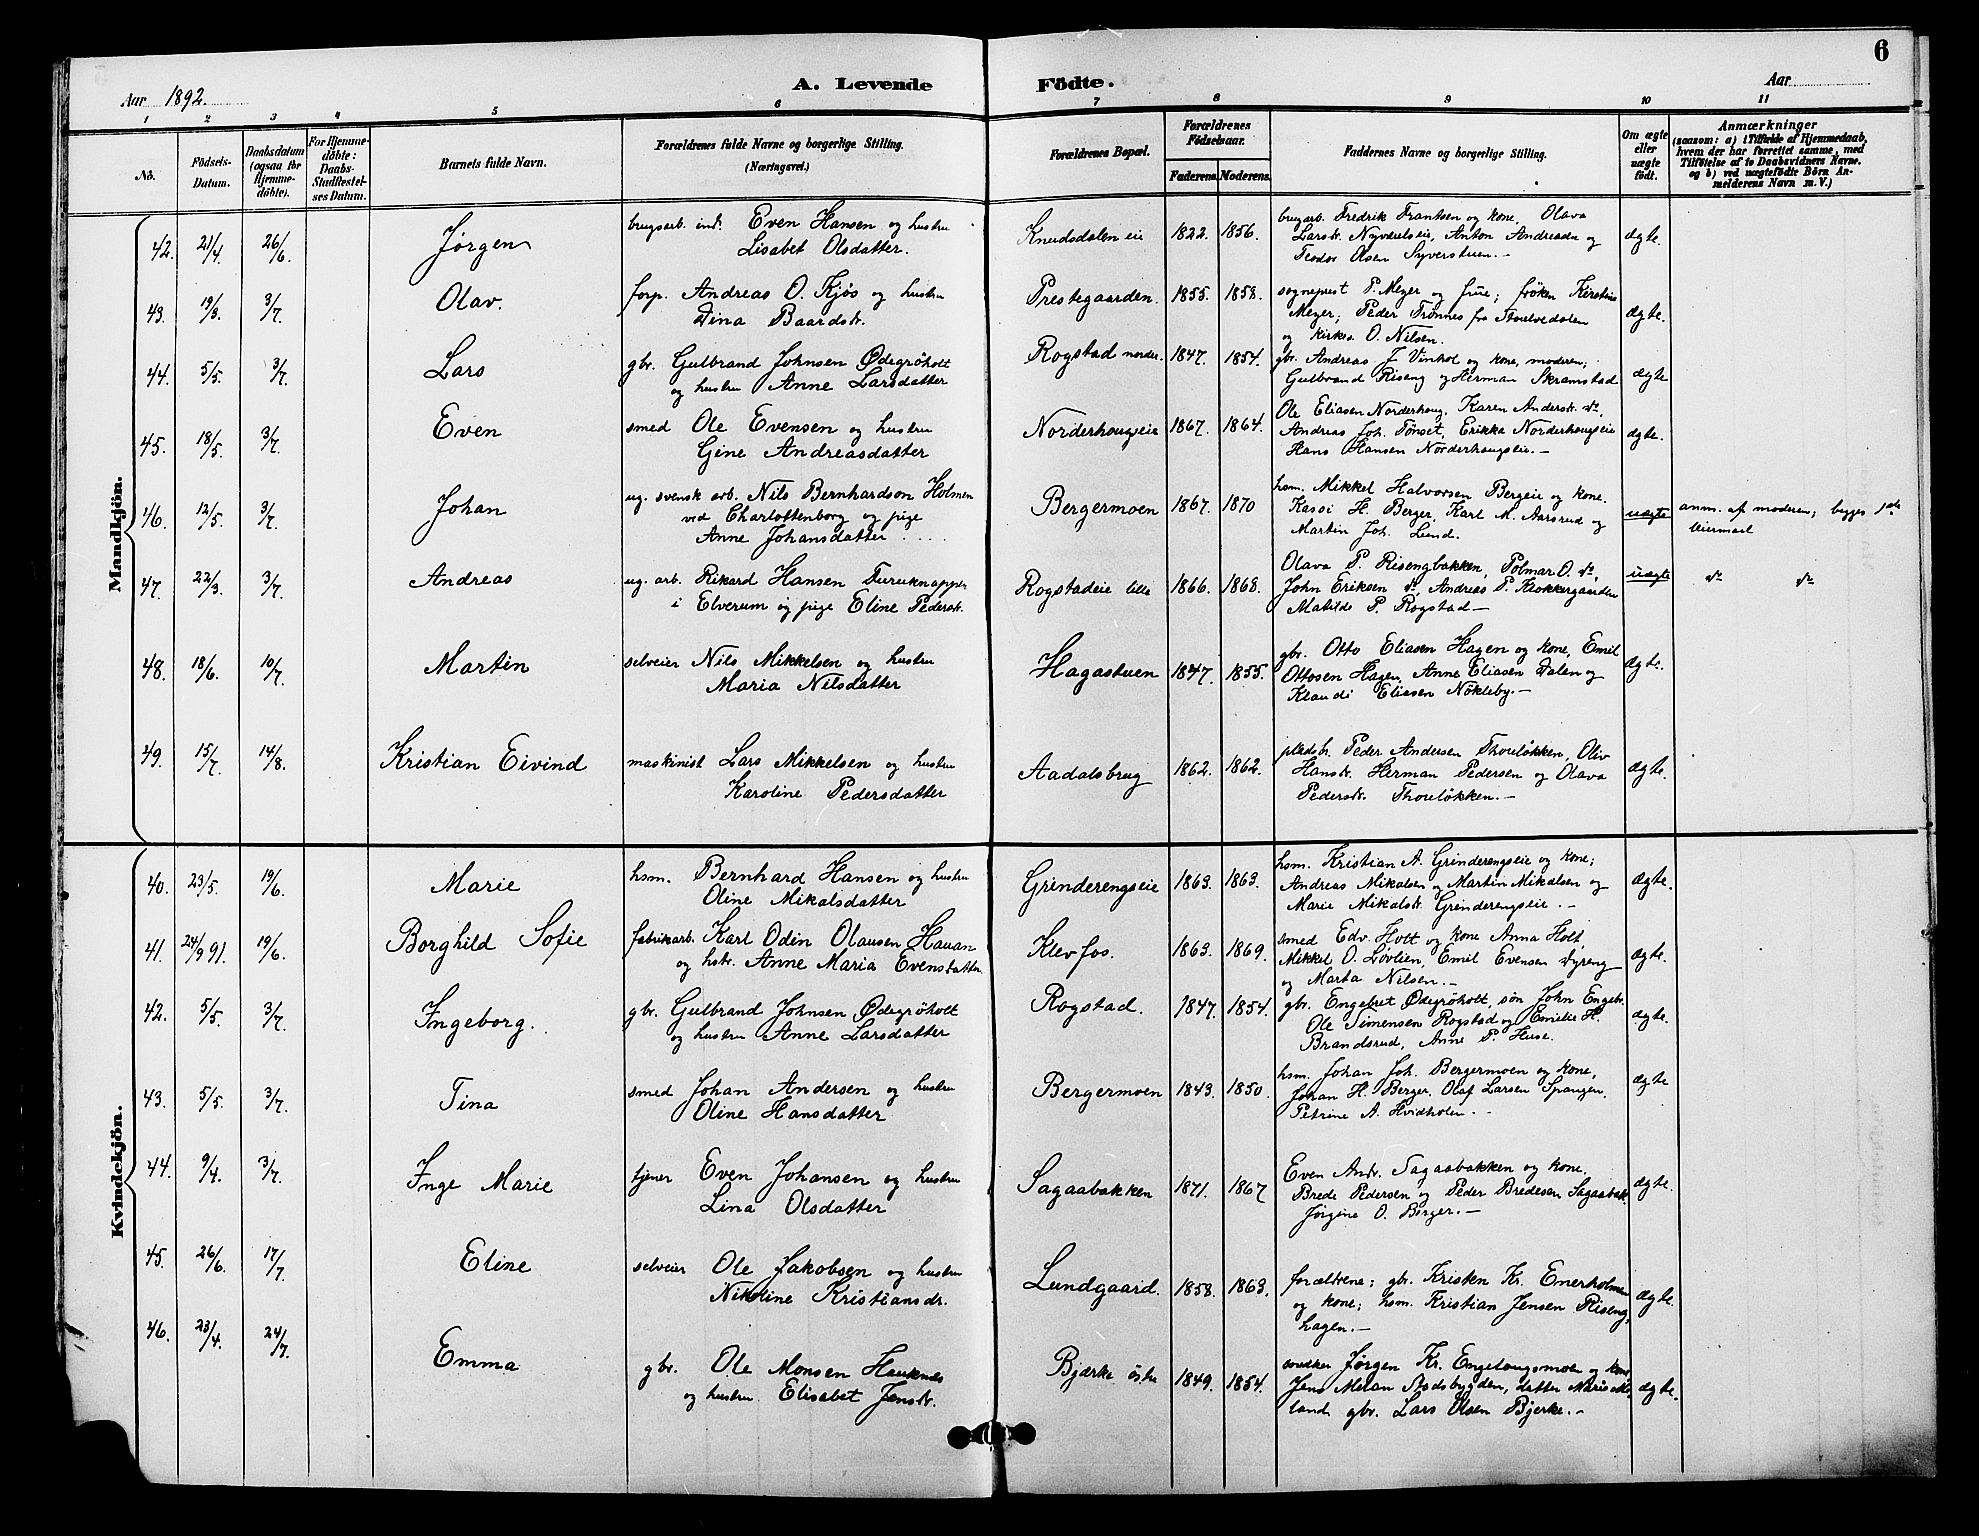 6
Aar 1892.
A. Levende Födte.
Aar
1 2 3 4 5 6 7 8 9 10 11
No.
Födsels-Datum.
Daabsdatum (ogsaa for Hjemme-döbte).
For Hjemme-döbte: Daabs-Stadfæstel-ses Datum.
Barnets fulde Navn.
Forældrenes fulde Navne og borgerlige Stilling.
(Næringsvei.)
Forældrenes Bopæl.
Forældrenes Födselsaar.
Faderens. Moderens.
Faddernes Navne og borgerlige Stilling.
Om ægte eller uægte födt.
Anmærkninger
(saasom: a) i Tilfælde af Hjemmedaab, hvem der har forrettet samme, med Tilföielse af to Daabsvidners Navne. og b) ved uægtefödte Börn An-melderens Navn m. V.)
Mandkjön.
42. 21/4. 26/6. Jørgen brugsarb. ind. Even Hansen og hustru
Lisabet Olsdatter.
Knudsdalen eie 1822. 1856. brugarb. Fredrik Frantsen og kone, Olava
Larsdr. Nyvælseie, Anton Andreasen og
Teodor Olsen Syverstuen.- ægte.
43. 19/3. 3/7. Olav. forp. Andreas O. Kjøs og hustru
Dina Baardsdr.
Prestegaarden. 1855. 1858. sogneprest P. Meyer og frue; frøken Kirstine
Meyer; Peder Trønnes fra Thorlvedalen
og kirkes. O. Nilsen. ægte.
44. 5/5. 3/7. Lars gbr. Gulbrand Johnsen Ødegröholt
og hustru Anne Larsdatter
Rogstad nordre. 1847. 1854. gbr. Andreas J Vinhol og kone, moderen;
Gulbrand Riseng og Herman Skramstad ægte
45. 18/5. 3/7. Even smed Ole Evensen og hustru
Gine Andreasdatter
Norderhougseie 1867. 1864. Ole Eliasen Norderhoug, Karen Andersdr. do,
Andreas Joh. Tønset, Erikka Norderhougseie
Hans Hansen Norderhougseie.- ægte.
46. 12/5. 3/7. Johan ug. svensk arb. Nils Bernhardson Holmen
ved Charlottenborg og pige
Anne Johansdatter ....
Bergermoen 1867. 1870 hsm. Mikkel Halvorsen Bergeie og kone.
H. Berger, Karl M. Aarsrud og
Martin Joh. Lund. uægte anm. af moderen; begges 1ste
leiermaal
47. 22/3. 3/7. Andreas ug. arb. Rikard Hansen Furuknappen
i Elverum og pige Eline Pedersdr.
Rogstadeie lille 1866. 1868. Olava P. Risengbakken, Polmar O. do,
John Eriksen do, Andreas P. Klokkergaarden
Matilde P. Rogstad - uægte do do
48. 18/6. 10/7. Martin selveier Nils Mikkelsen og hustru
Maria Nilsdatter
Hagastuen 1847. 1855. gbr. Otto Eliasen Hagen og kone, Emil
Ottosen Hagen, Anne Eliasen Dalen og
Klaudi Eliasen Nökleby.- ægte.
49. 15/7. 14/8. Kristian Eivind maskinist Lars Mikkelsen og hustru
Karoline Pedersdatter
Aadalsbrug 1862. 1862. pladsbr. Peder Andersen Thorløkken, Oliv
Hansdr. Herman Pedersen og Olava
Pedersdr. Thorløkken.- ægte.
Kvindekjön.
40. 23/5. 19/6. Marie hsm. Bernhard Hansen og hustru
Oline Mikalsdatter
Grinderengseie 1863. 1863. hsm. Kristian A. Grinderengseie og kone;
Andreas Mikalsen og Martin Mikalsen og
Marie Mikalsdr. Grinderengseie.- ægte.
41. 24/9 91. 19/6. Borghild Sofie fabrikarb. Karl Odin Olausen Hauan
og hstr. Anne Maria Evensdatter
Klevfos. 1863. 1869. smed Edv. Holt og kone Anna Holt,
Mikkel O. Løvlien, Emil Evensen Dyreng
og Marta Nilsen.- ægte.
42. 5/5. 3/7. Ingeborg. gbr. Gulbrand Johnsen Ødegröholt
og hustru Anne Larsdatter
Rogstad. 1847. 1854. gbr. Engebret Ødegröholt, søn John Engebr.
Ole Simensen Rogstad og Emilie H.
Brandsrud, Anne P. Huse. ægte.
43. 5/5. 3/7. Tina smed Johan Andersen og hustru
Oline Hansdatter
Bergermoen 1843. 1850. hsm. Johan Joh. Bergermoen og kone,
Johan H. Berger, Olaf Larsen Spangen.
Petrine A. Hvidholen.- ægte
44. 9/4. 3/7. Inge Marie tjener Even Johansen og hustru
Lina Olsdatter
Sagaabakken 1871. 1867 Even Andr. Sagaabakken og kone,
Brede Pedersen og Peder Bredesen Sagaabak.
Jørgine O. Berger.- ægte.
45. 26/6. 17/7. Eline selveier Ole Jakobsen og hustru
Nikoline Kristiansdr.
Lundgaard. 1858. 1863. forældrene; gbr. Kristen Kr. Emerholmen
og kone; hsm. Kristian Jensen Riseng,
hagen.- ægte.
46. 23/4. 24/7. Emma gbr. Ole Monsen Hauknes
og hustru Elisabet Jensdr.
Bjærke östre 1849. 1854. snedker Jørgen Kr. Engelaugsmoen og kone,
Jens Melan Stadsbygden, datter Marie
land gbr. Lars Olsen Bjerke.- ægte.